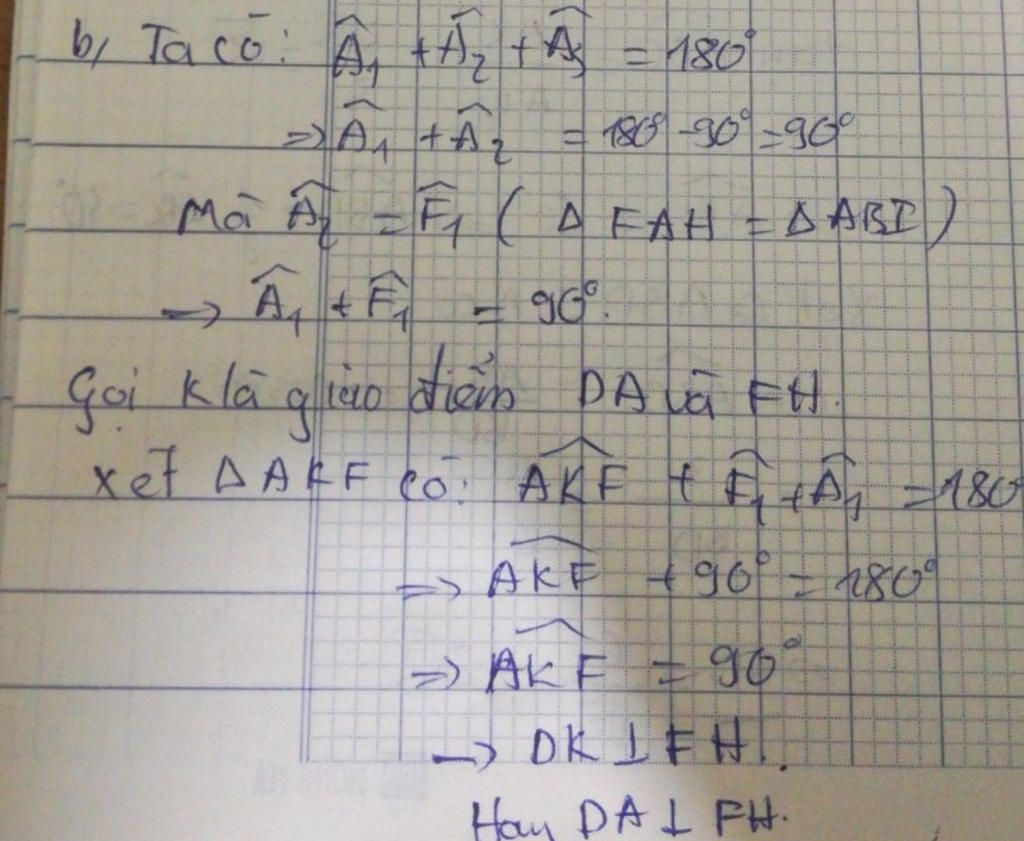 b, Ta có: Â₁ + Â₂ + Â₃ = 180°
=> Â₁ + Â₂ = 180° - 90° = 90°
Mà Â₂ = F̂₁ ( Δ FAH = Δ ABI )
→ Â₁ + F̂₁ = 90°.
Gọi K là giao điểm DA và FH.
xét Δ AKF có: \widehat{AKF} + F̂₁ + Â₁ = 180
=> \widehat{AKF} + 90° = 180°
=> \widehat{AKF} = 90°
→ DK ⊥ FH.
Hay DA ⊥ FH.